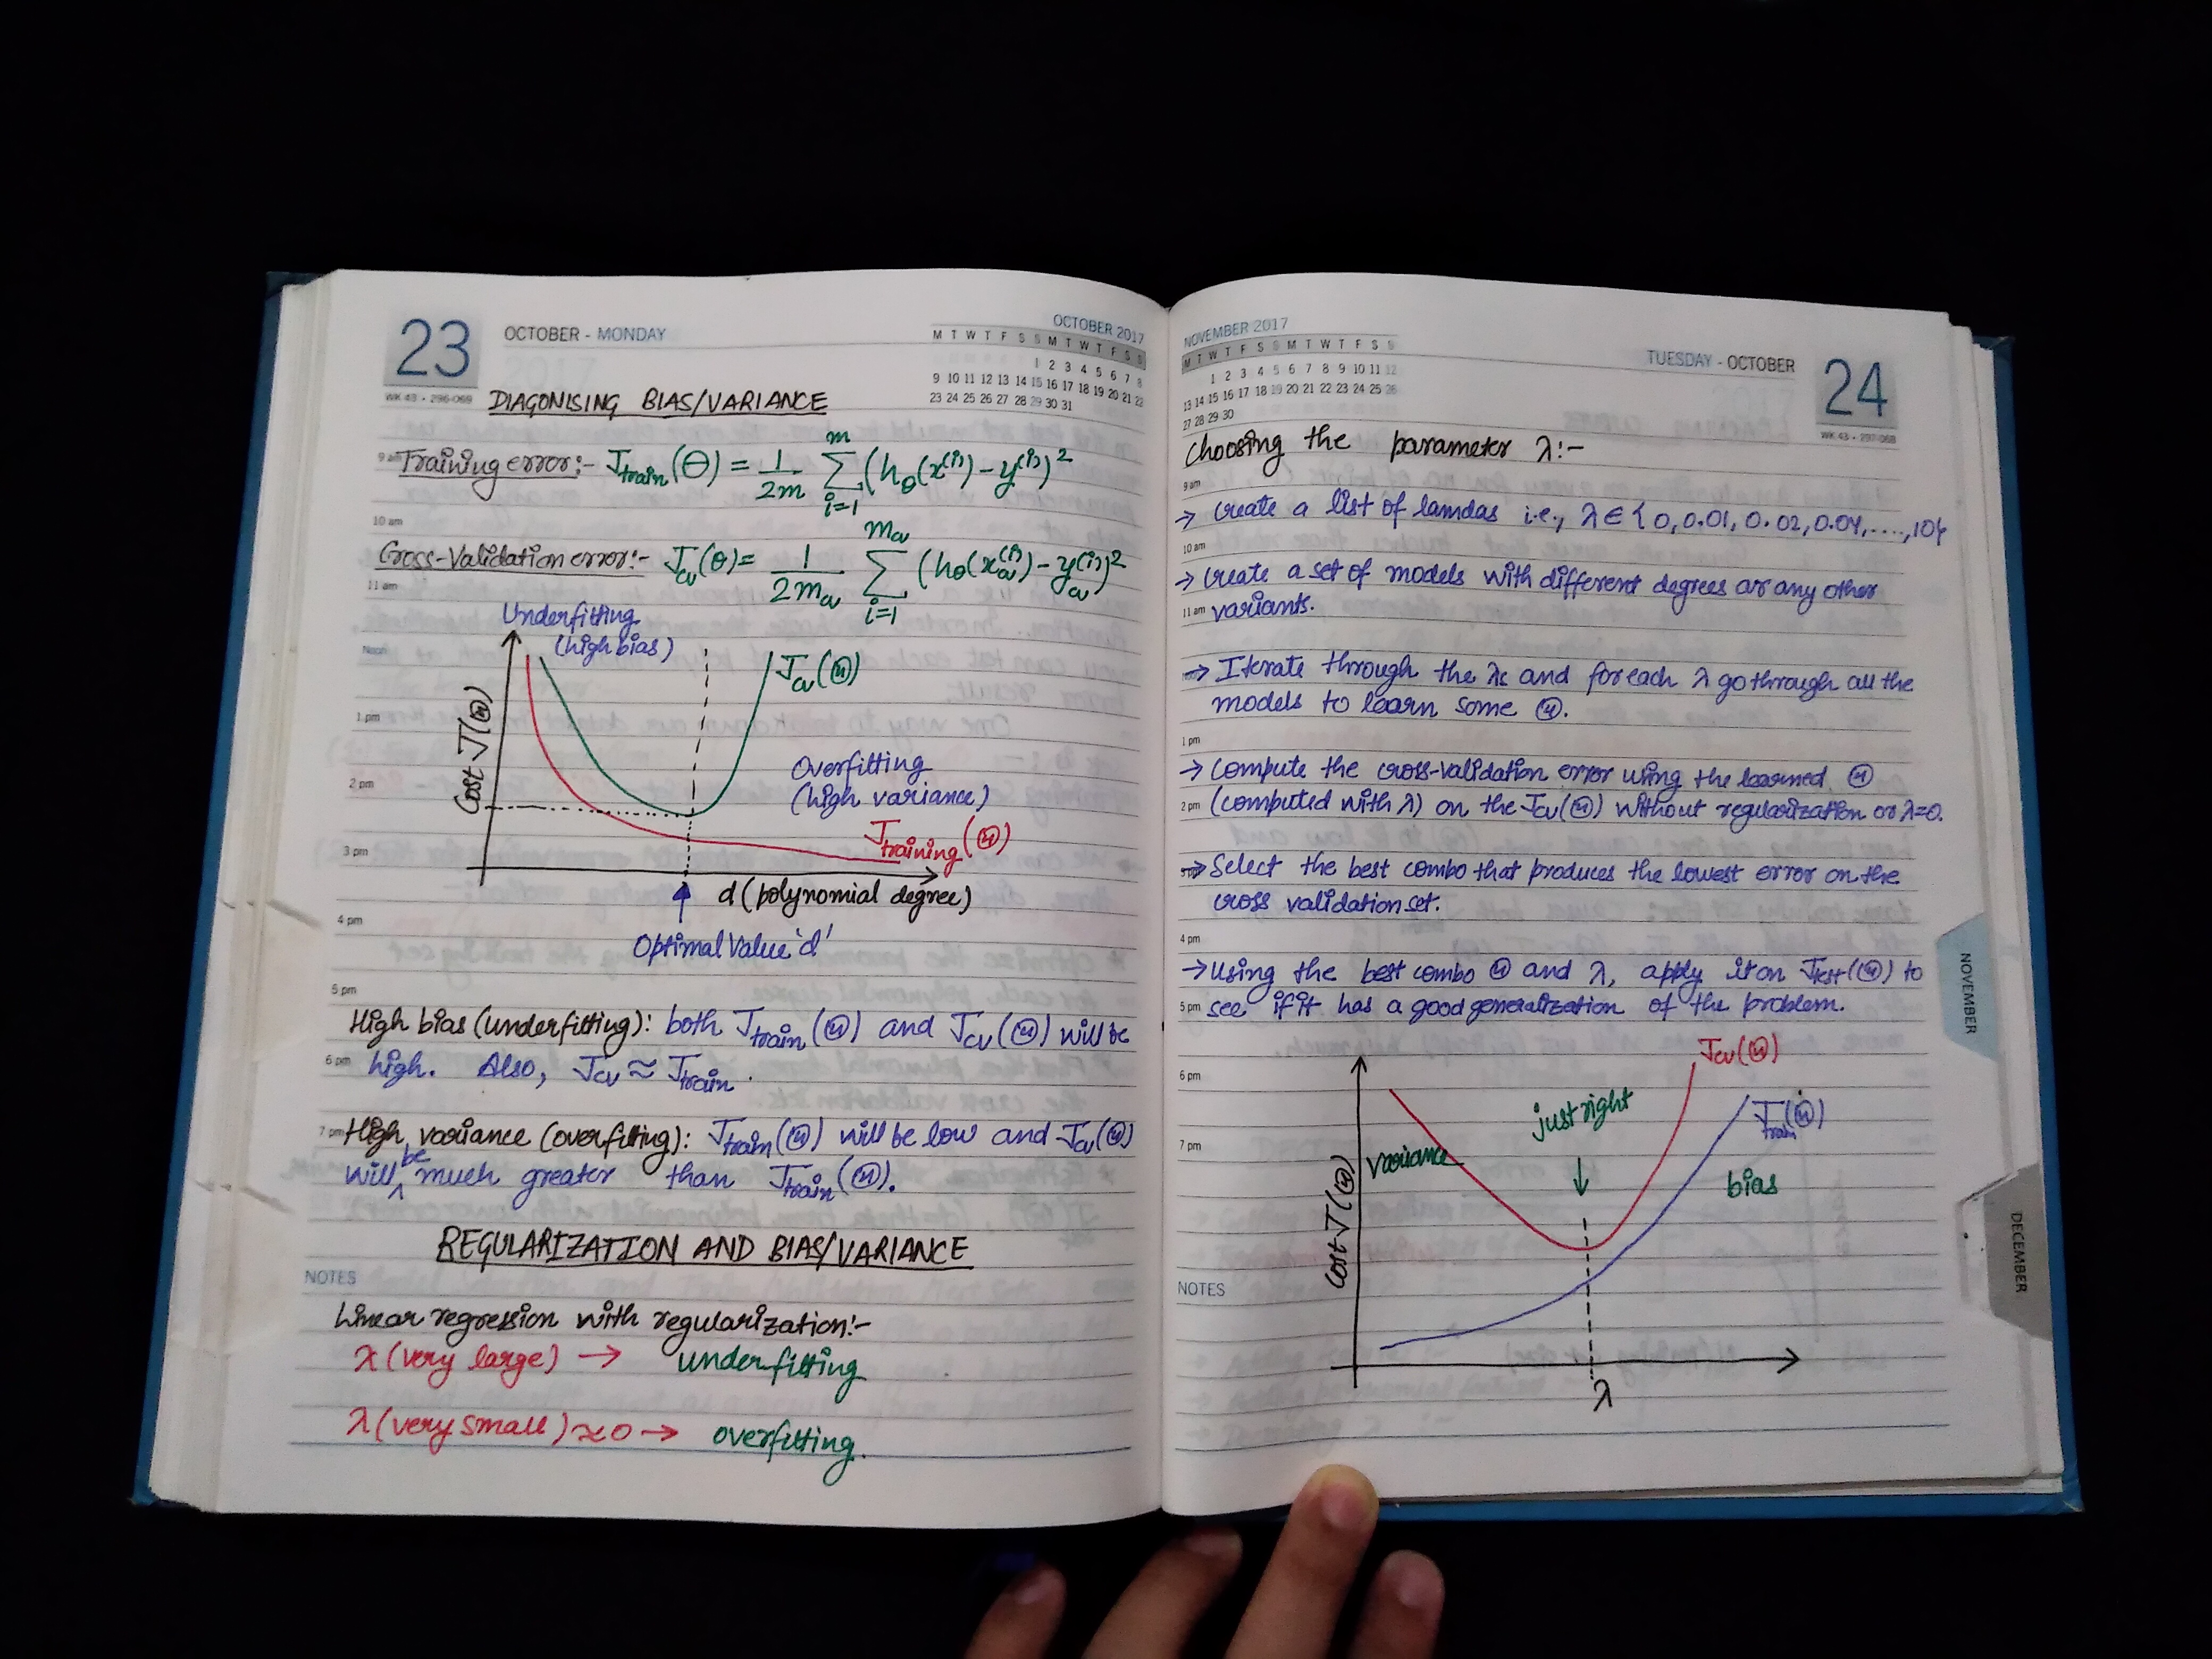 23
OCTOBER - MONDAY
OCTOBER 2017
M T W T F S S M T W T F S S
1 2 3 4 5 6 7 8
9 10 11 12 13 14 15 16 17 18 19 20 21 22
23 24 25 26 27 28 29 30 31
WK 43 • 296-069
DIAGONISING BIAS/VARIANCE
9 am
Training error:- J_train(Θ) = 1/2m Σ_{i=1}^{m} (h_θ(x^(i)) - y^(i))^2
10 am
Cross-Validation error:- J_cv(θ) = 1/2m_cv Σ_{i=1}^{m_cv} (h_θ(x_cv^(i)) - y_cv^(i))^2
11 am
Underfitting
(high bias)
Noon
J_cv(Θ)
Cost J(Θ)
1 pm
Overfitting
2 pm
(high variance)
J_training(Θ)
3 pm
d (polynomial degree)
4 pm
Optimal Value 'd'
5 pm
High bias (underfitting): both J_train(Θ) and J_cv(Θ) will be
6 pm
high. Also, J_cv ≈ J_train.
7 pm
High variance (overfitting): J_train(Θ) will be low and J_cv(Θ)
will be much greater than J_train(Θ).
REGULARIZATION AND BIAS/VARIANCE
NOTES
Linear regression with regularization:-
λ (very large) → underfitting
λ (very small) ≈ 0 → overfitting.
NOVEMBER 2017
M T W T F S S M T W T F S S
1 2 3 4 5 6 7 8 9 10 11 12
13 14 15 16 17 18 19 20 21 22 23 24 25 26
27 28 29 30
TUESDAY - OCTOBER
24
WK 43 • 297-068
Choosing the parameter λ:-
9 am
→ Create a list of lamdas i.e., λ ∈ {0, 0.01, 0.02, 0.04, ...., 10}
10 am
→ Create a set of models with different degrees or any other
11 am
variants.
→ Iterate through the λs and for each λ go through all the
models to learn some Θ.
1 pm
→ Compute the cross-validation error using the learned Θ
2 pm
(computed with λ) on the J_cv(Θ) without regularization or λ=0.
→ Select the best combo that produces the lowest error on the
cross validation set.
4 pm
→ Using the best combo Θ and λ, apply it on J_test(Θ) to
5 pm
see if it has a good generalization of the problem.
J_cv(Θ)
6 pm
just right
J_train(Θ)
7 pm
variance
bias
Cost J(Θ)
NOTES
λ
NOVEMBER
DECEMBER